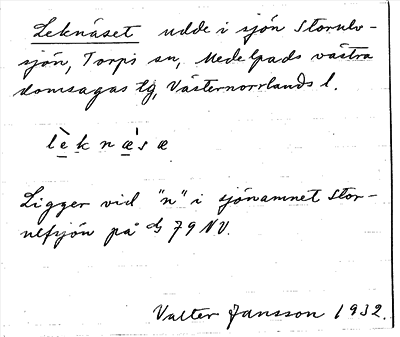 Leknäset udde i sjön Storulv-
sjön, Torps sn, Medelpads västra
domsagas tg, Västernorrlands l.
lèknæ̀sæ
Ligger vid "n" i sjönamnet Stor-
ulfsjön på 79 NV.
Valter Jansson 1932.